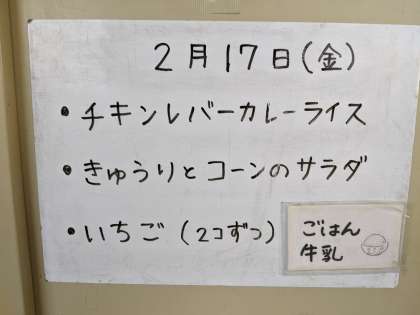 2月17日(金)
・チキンレバーカレーライス
・きゅうりとコーンのサラダ
・いちご(2コずつ)
ごはん
牛乳